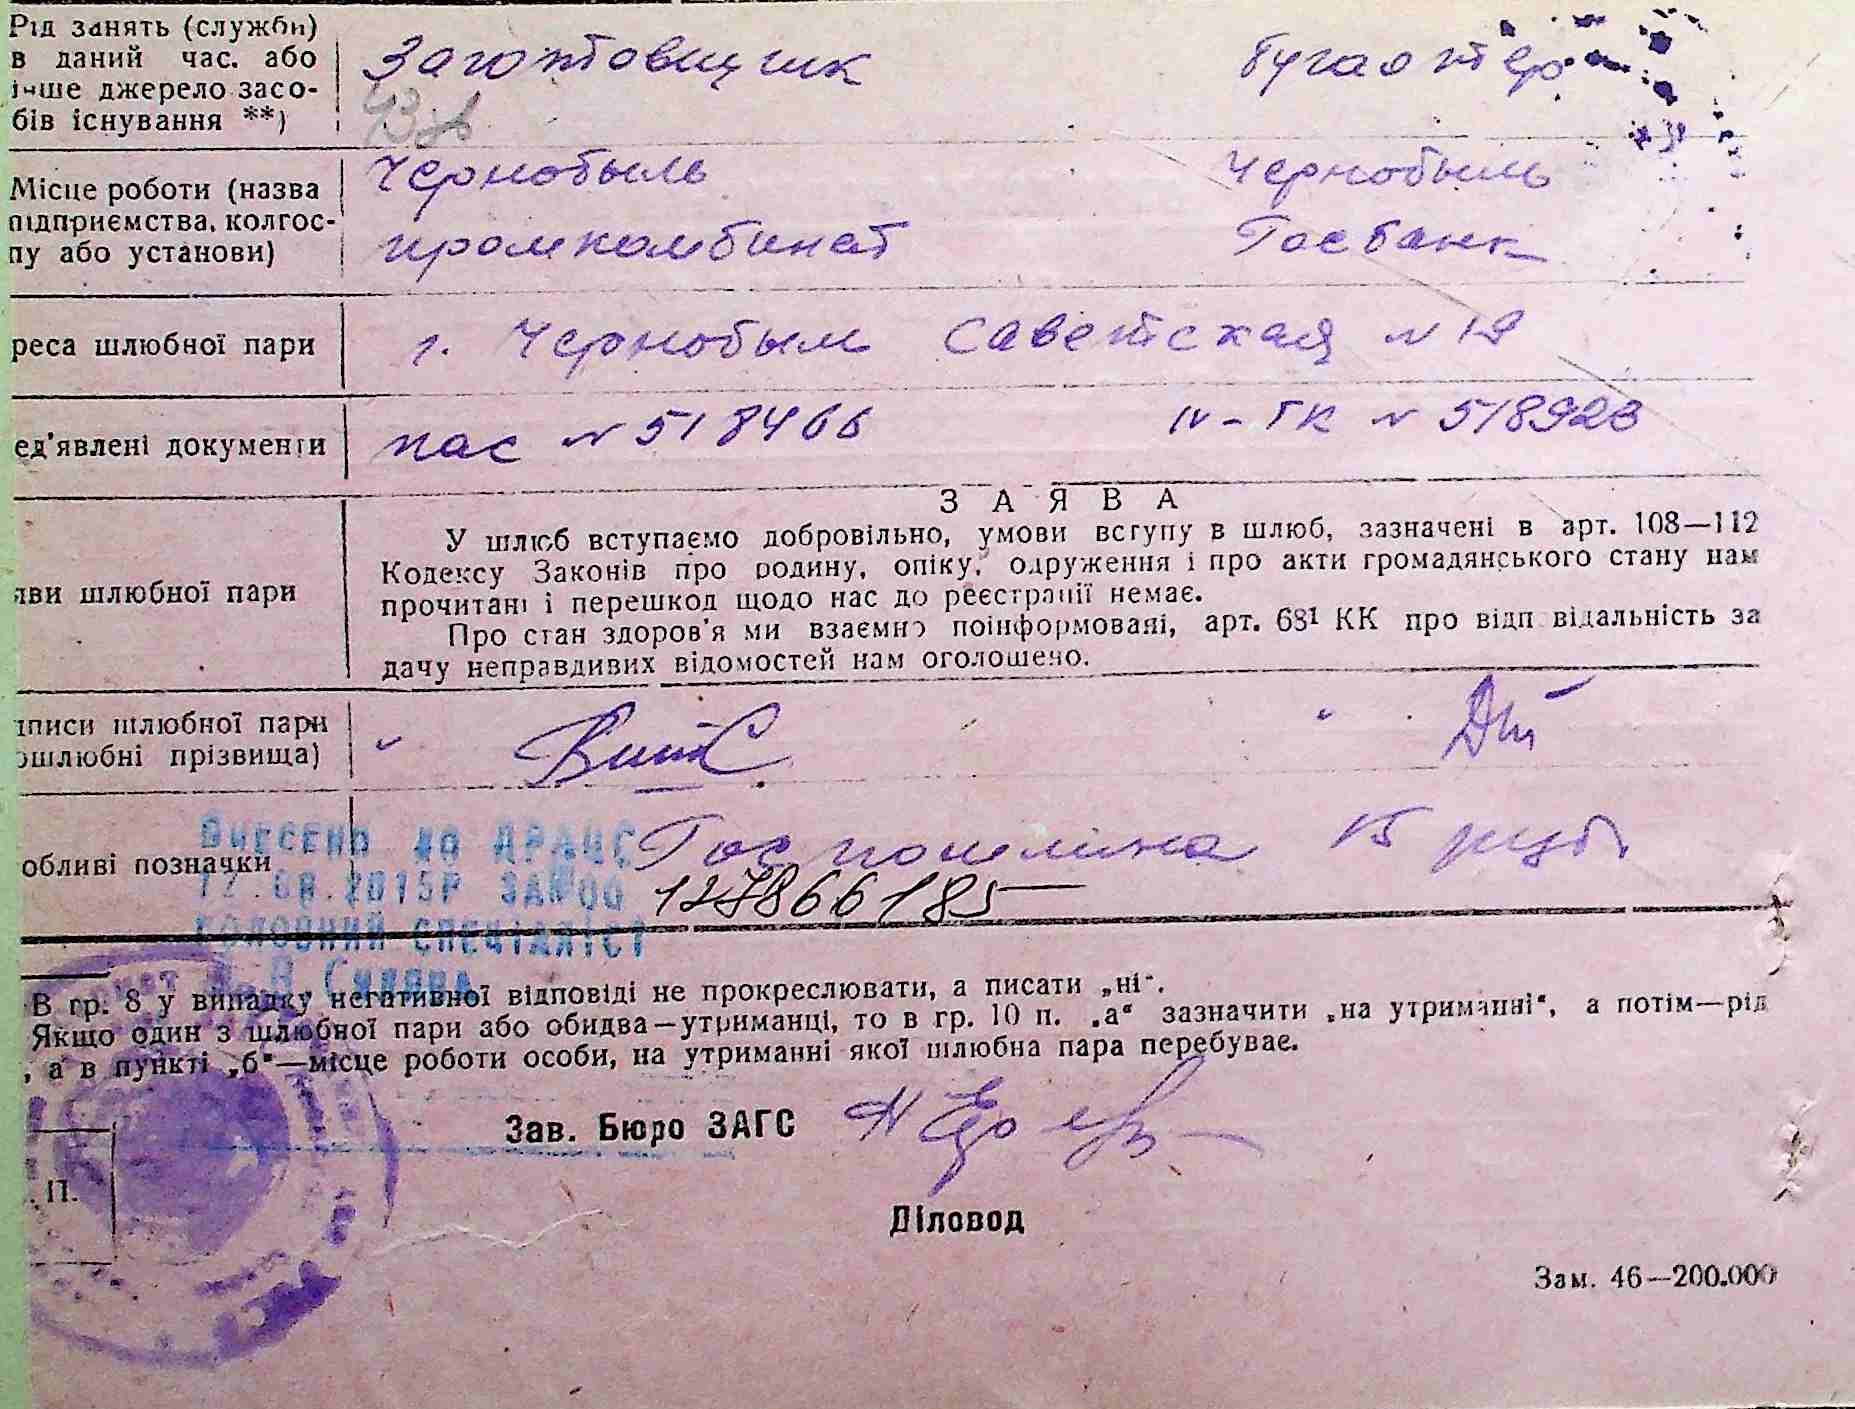 Рід занять (служби)
в даний час. або
інше джерело засо-
бів існування **)
Заготовщик
бугаотер
Місце роботи (назва
підприємства, колгос-
пу або установи)
Чернобыль
промкомбинат
Чернобыль
Госбанк
реса шлюбної пари
г. Чернобыль Саветская N 19
ед'явлені документи
пас N 518466
IV-ГК N 518923
яви шлюбної пари
ЗАЯВА
У шлюб вступаємо добровільно, умови вступу в шлюб, зазначені в арт. 108—112
Кодексу Законів про родину, опіку, одруження і про акти громадянського стану нам
прочитані і перешкод щодо нас до реєстрації немає.
Про стан здоров'я ми взаємно поінформовані, арт. 68¹ КК про відповідальність за
дачу неправдивих відомостей нам оголошено.
дписи шлюбної пари
ошлюбні прізвища)
обливі позначки
Внесено до ДРАЦС
12.08.2015р
головний спеціаліст
Гос пошлина 15 руб.
127866185
В гр. 8 у випадку негативної відповіді не прокреслювати, а писати „ні".
Якщо один з шлюбної пари або обидва—утриманці, то в гр. 10 п. „а" зазначити „на утриманні", а потім—рід
, а в пункті „б"—місце роботи особи, на утриманні якої шлюбна пара перебуває.
Зав. Бюро ЗАГС
. П.
Діловод
Зам. 46—200.000